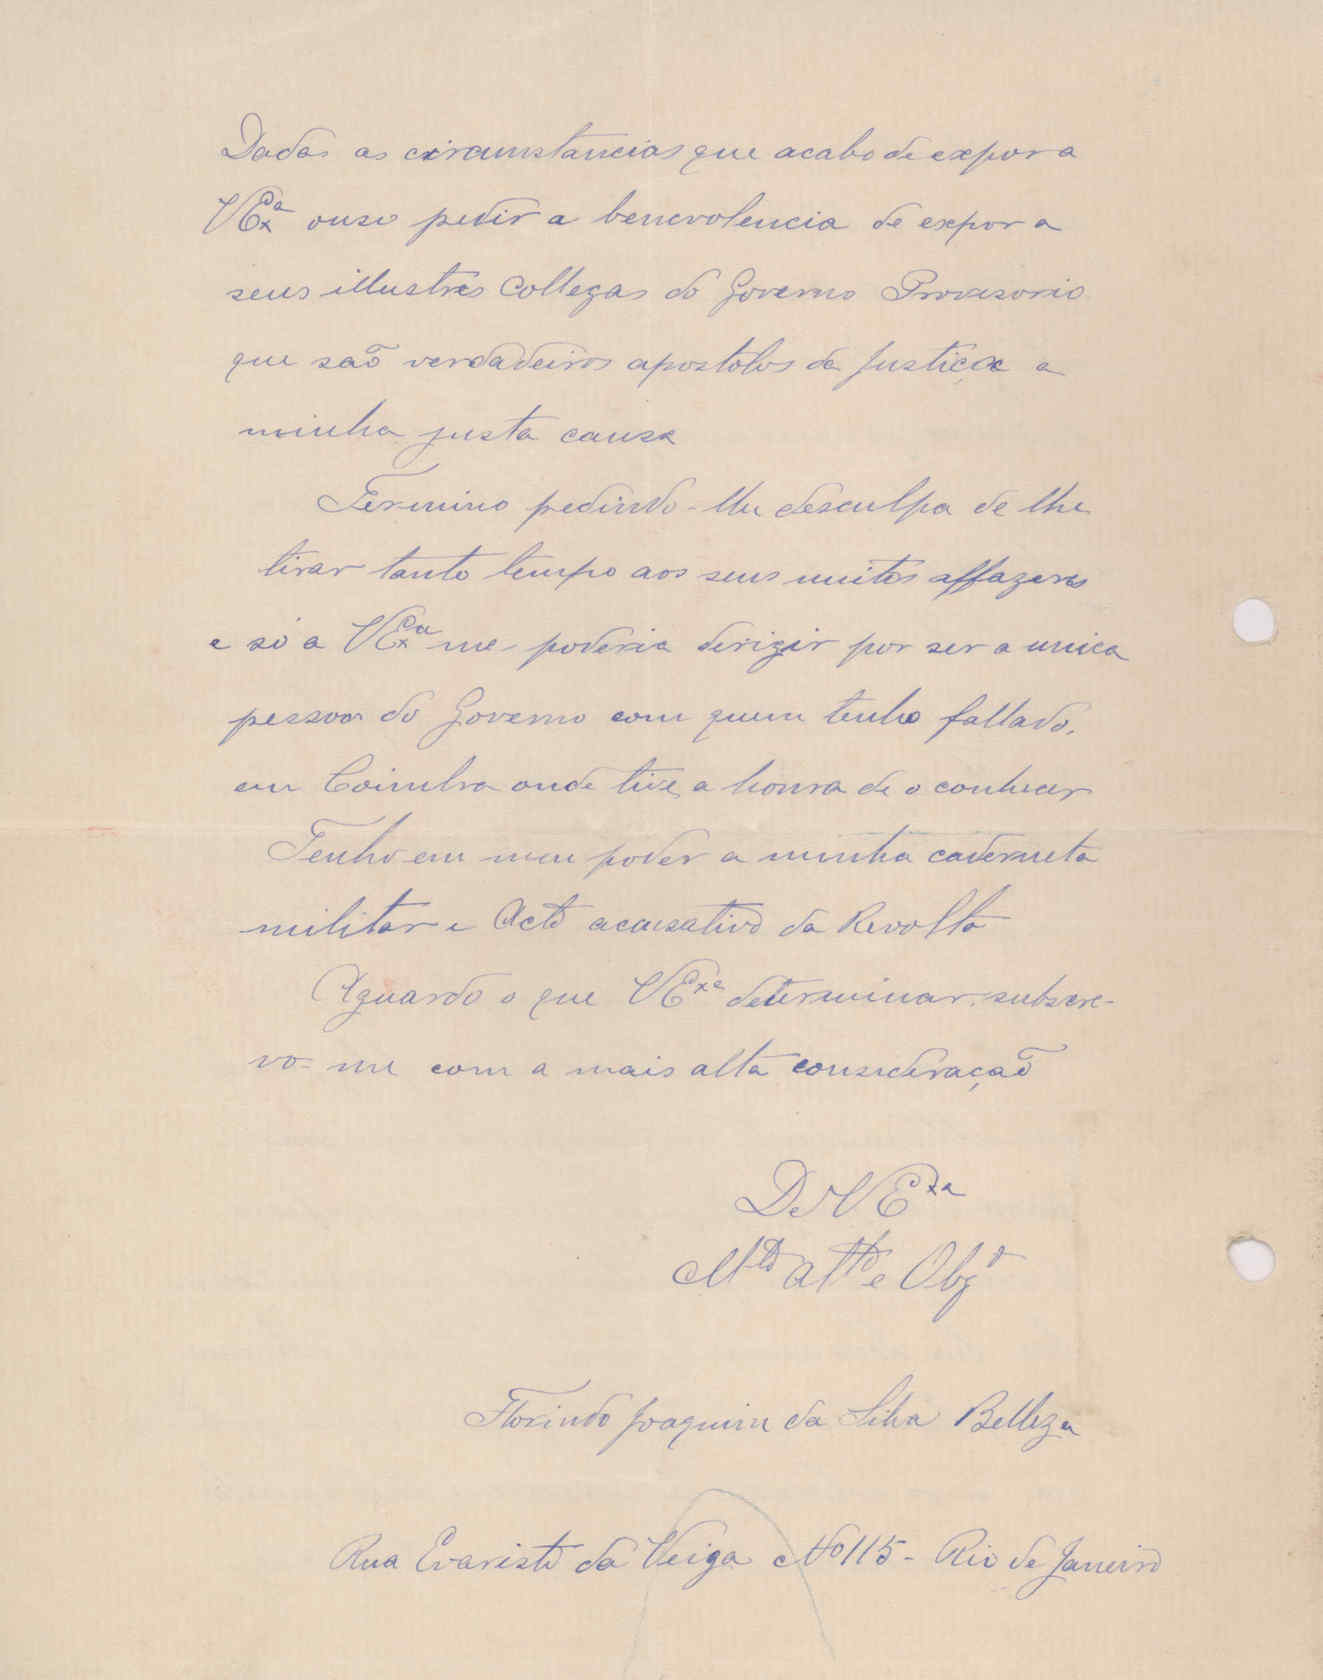 Dadas as circumstancias que acabo de expor a
VExa ouso pedir a benevolencia de expor a
seus illustres Collegas do Governo Provisorio
que saõ verdadeiros apostolos da Justiça a
minha justa causa
Termino pedindo-lhe desculpa de lhe
tirar tanto tempo aos seus muitos affazeres
e só a VExa me poderia derigir por ser a unica
pessoa do Governo com quem tenho fallado,
em Coimbra onde tive a honra de o conhecer
Tenho em meu poder a minha caderneta
militar e Acto acusativo da Revolta
Aguardo o que VExa determinar, subscre-
vo-me com a mais alta consideraçaõ
De VExa
Mto Atto e Obgo
Florindo Joaquim da Silva Belleza
Rua Evaristo da Veiga No 115 - Rio de Janeiro